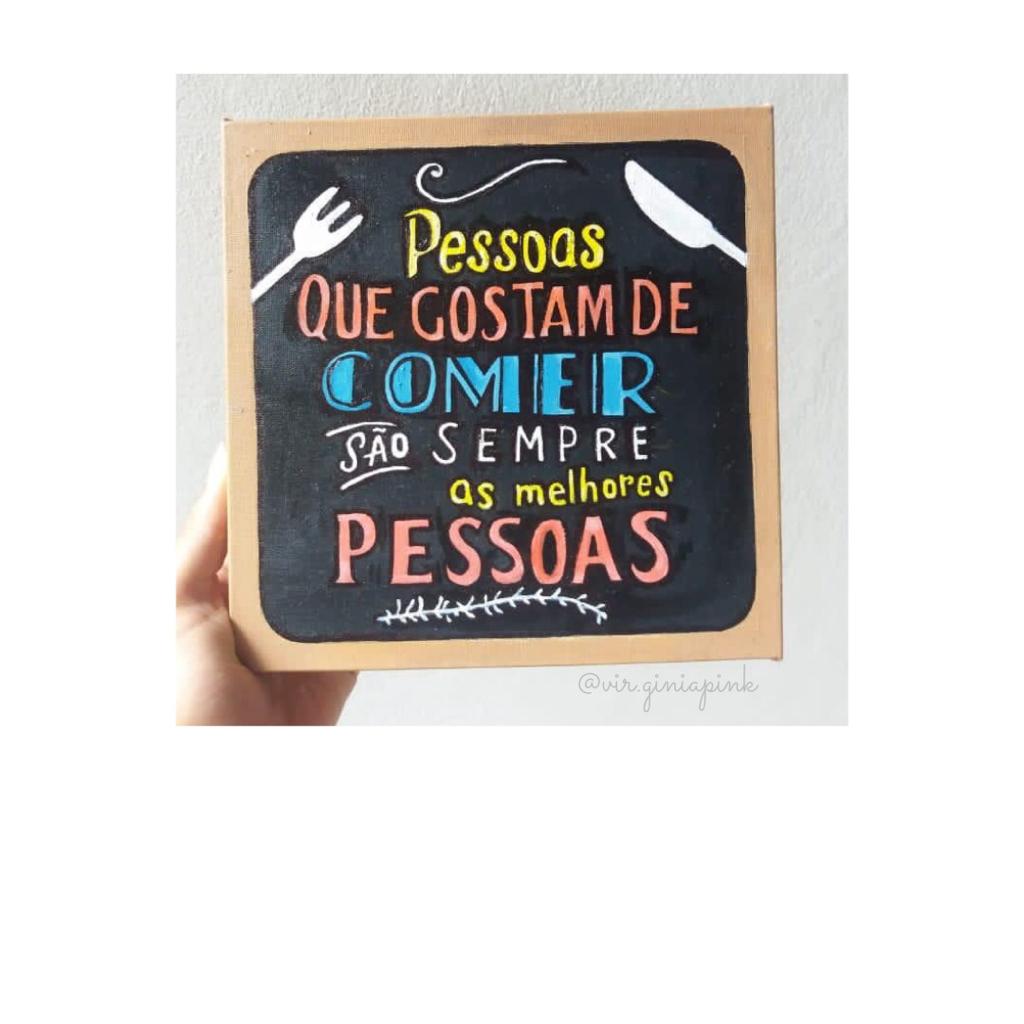 Pessoas
QUE GOSTAM DE
COMER
SÃO SEMPRE
as melhores
PESSOAS
@vir.giniapink